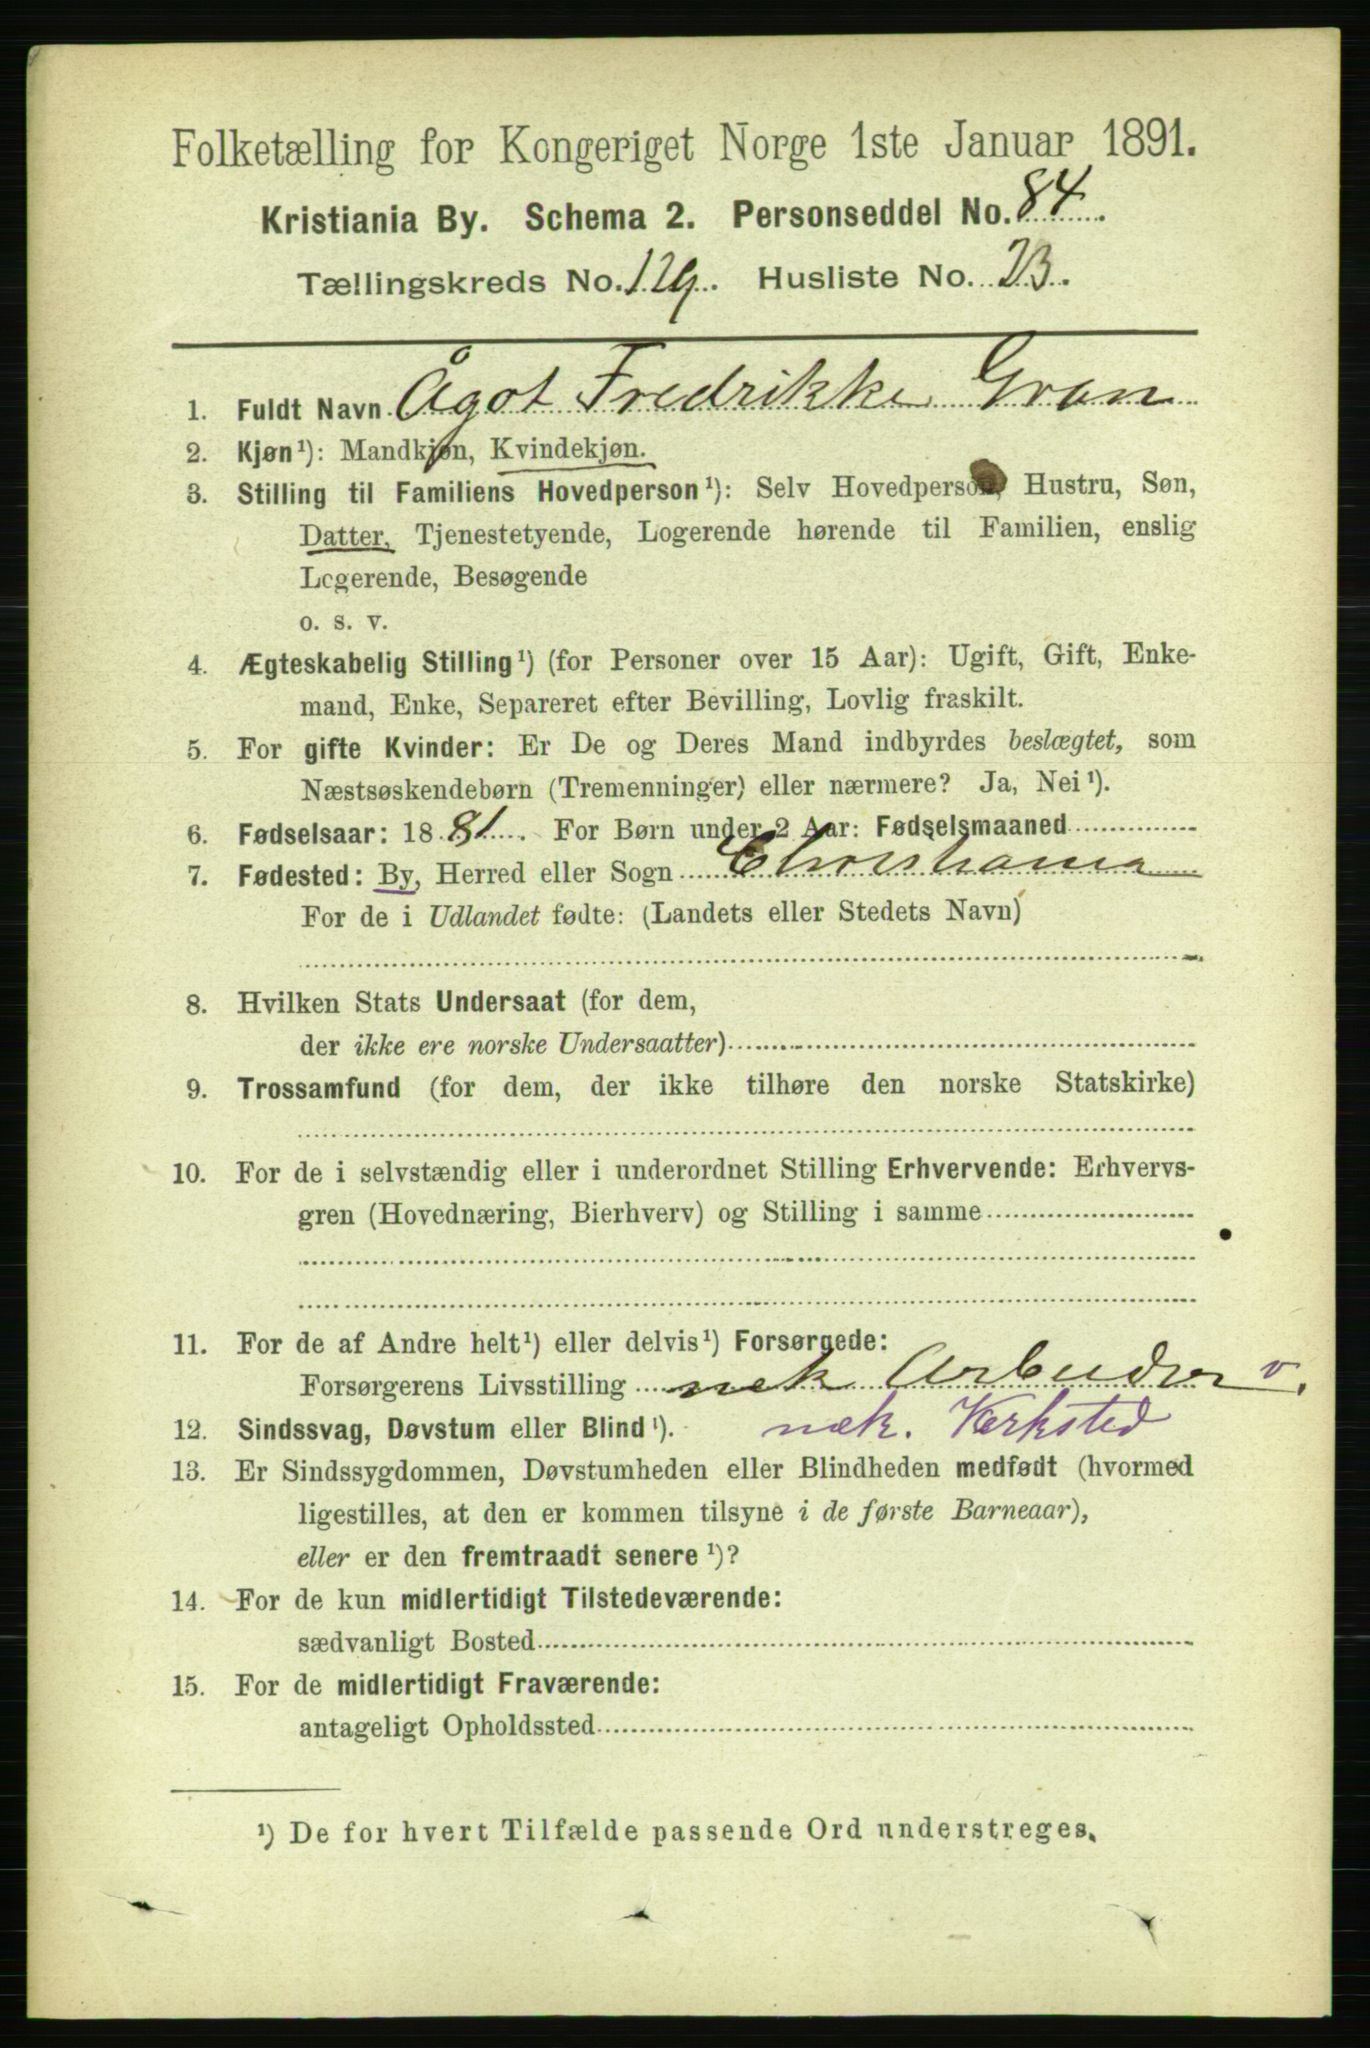 Folketælling for Kongeriget Norge 1ste Januar 1891.
Kristiania By. Schema 2. Personseddel No. 84.
Tællingskreds No. 129. Husliste No. 23.
1. Fuldt Navn Ågot Fredrikke Gran
2. Kjøn¹): Mandkjøn, Kvindekjøn.
3. Stilling til Familiens Hovedperson¹): Selv Hovedperson, Hustru, Søn,
Datter, Tjenestetyende, Logerende hørende til Familien, enslig
Logerende, Besøgende
o. s. v.
4. Ægteskabelig Stilling¹) (for Personer over 15 Aar): Ugift, Gift, Enke-
mand, Enke, Separeret efter Bevilling, Lovlig fraskilt.
5. For gifte Kvinder: Er De og Deres Mand indbyrdes beslægtet, som
Næstsøskendebørn (Tremenninger) eller nærmere? Ja, Nei¹).
6. Fødselsaar: 1881. For Børn under 2 Aar: Fødselsmaaned
7. Fødested: By, Herred eller Sogn Christiania
For de i Udlandet fødte: (Landets eller Stedets Navn)
8. Hvilken Stats Undersaat (for dem,
der ikke ere norske Undersaatter)
9. Trossamfund (for dem, der ikke tilhøre den norske Statskirke)
10. For de i selvstændig eller i underordnet Stilling Erhvervende: Erhvervs-
gren (Hovednæring, Bierhverv) og Stilling i samme
11. For de af Andre helt¹) eller delvis¹) Forsørgede:
Forsørgerens Livsstilling mek Arbeider v.
12. Sindssvag, Døvstum eller Blind¹). mek. Værksted
13. Er Sindssygdommen, Døvstumheden eller Blindheden medfødt (hvormed
ligestilles, at den er kommen tilsyne i de første Barneaar),
eller er den fremtraadt senere¹)?
14. For de kun midlertidigt Tilstedeværende:
sædvanligt Bosted
15. For de midlertidigt Fraværende:
antageligt Opholdssted
¹) De for hvert Tilfælde passende Ord understreges.